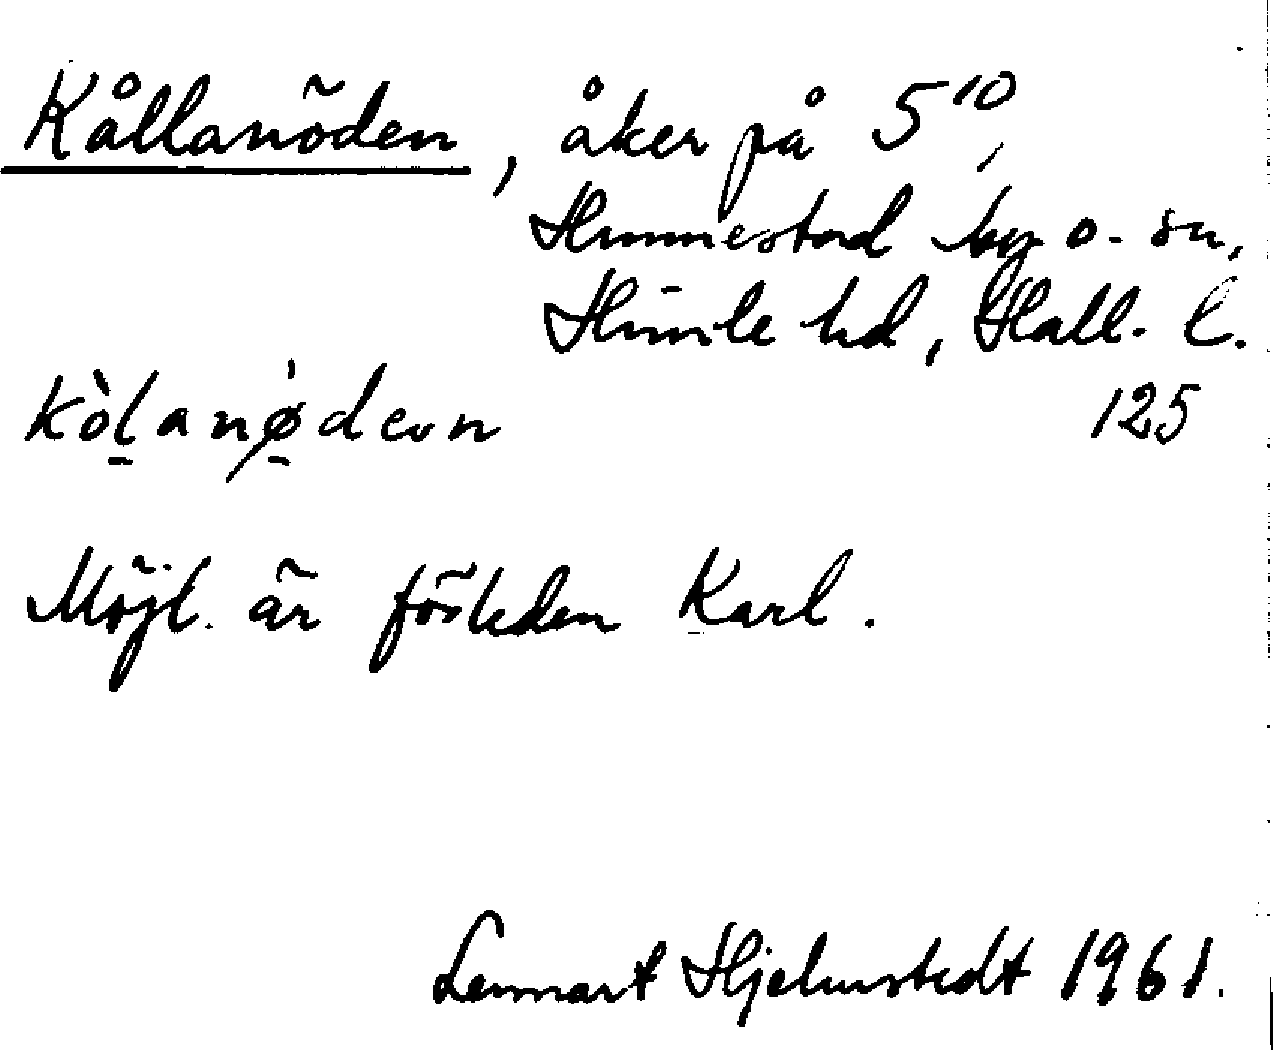 Kållanöden, åker på 5¹⁰,
Hunnestad by o. sn,
Himle hd, Hall. l.
kòḻanø̠̀den 125
Möjl. är förleden Karl.
Lennart Hjelmstedt 1961.